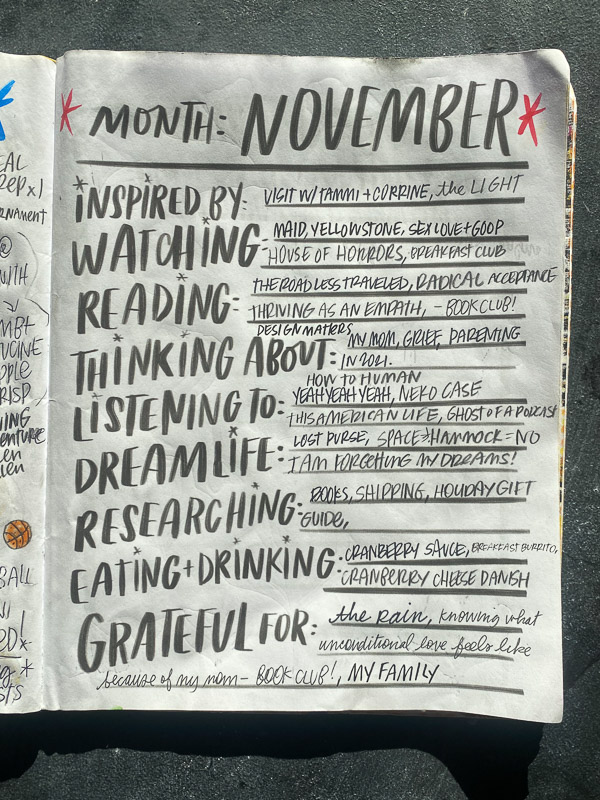 EAL
REP x 1
@
WITH
MB+
UCINE
RISP
BALL
* MONTH: NOVEMBER *
INSPIRED BY: VISIT W/ TAMMI + CORRINE, the LIGHT
WATCHING: MAID, YELLOWSTONE, SEX LOVE + GOOP
HOUSE OF HORRORS, BREAKFAST CLUB
READING: THE ROAD LESS TRAVELED, RADICAL ACCEPTANCE
THRIVING AS AN EMPATH, - BOOK CLUB!
DESIGN MATTERS
THINKING ABOUT: MY MOM, GRIEF, PARENTING
IN 2021.
HOW TO HUMAN
LISTENING TO: YEAH YEAH YEAH, NEKO CASE
THIS AMERICAN LIFE, GHOST OF A PODCAST
DREAMLIFE: LOST PURSE, SPACE HAMMOCK = NO
I AM FORGETTING MY DREAMS!
RESEARCHING: BOOKS, SHIPPING, HOLIDAY GIFT
GUIDE,
EATING + DRINKING: CRANBERRY SAUCE, BREAKFAST BURRITO,
CRANBERRY CHEESE DANISH
GRATEFUL FOR: the rain, knowing what
unconditional love feels like
because of my mom - BOOK CLUB!, MY FAMILY